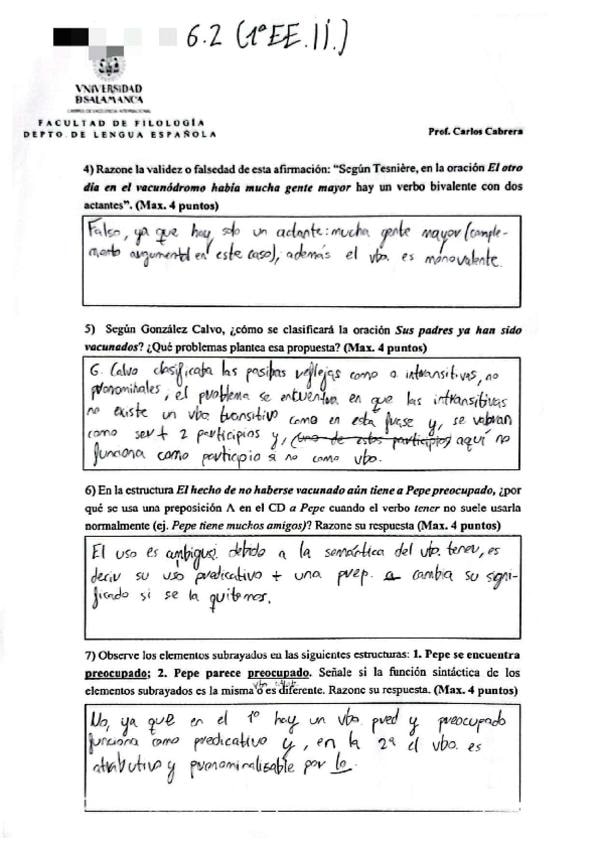 6.2 (1º EE.II.)
VNIVERSIDAD
D SALAMANCA
CAMPUS DE EXCELENCIA INTERNACIONAL
FACULTAD DE FILOLOGÍA
DEPTO. DE LENGUA ESPAÑOLA
Prof. Carlos Cabrera
4) Razone la validez o falsedad de esta afirmación: "Según Tesnière, en la oración El otro
día en el vacunódromo había mucha gente mayor hay un verbo bivalente con dos
actantes". (Max. 4 puntos)
Falso, ya que hay solo un actante: mucha gente mayor (comple-
mento argumental en este caso); además el vbo. es monovalente.
5) Según González Calvo, ¿cómo se clasificará la oración Sus padres ya han sido
vacunados? ¿Qué problemas plantea esa propuesta? (Max. 4 puntos)
G. Calvo clasificaba las pasivas reflejas como a intransitivas, no
pronominales, el problema se encuentra en que las intransitivas
no existe un vbo transitivo como en esta frase y, se valoran
como ser + 2 participios y, (uno de estos participios) aquí no
funciona como participio si no como vbo.
6) En la estructura El hecho de no haberse vacunado aún tiene a Pepe preocupado, ¿por
qué se usa una preposición A en el CD a Pepe cuando el verbo tener no suele usarla
normalmente (ej. Pepe tiene muchos amigos)? Razone su respuesta (Max. 4 puntos)
El uso es debido a la semántica del vbo. tener, es
decir su uso predicativo + una prep. a cambia su signi-
ficado si se la quitemos.
7) Observe los elementos subrayados en las siguientes estructuras: 1. Pepe se encuentra
preocupado; 2. Pepe parece preocupado. Señale si la función sintáctica de los
elementos subrayados es la misma o es diferente. Razone su respuesta. (Max. 4 puntos)
No, ya que en el 1º hay un vbo. pred y preocupado
funciona como predicativo y, en la 2ª el vbo. es
atributivo y pronominalizable por lo.